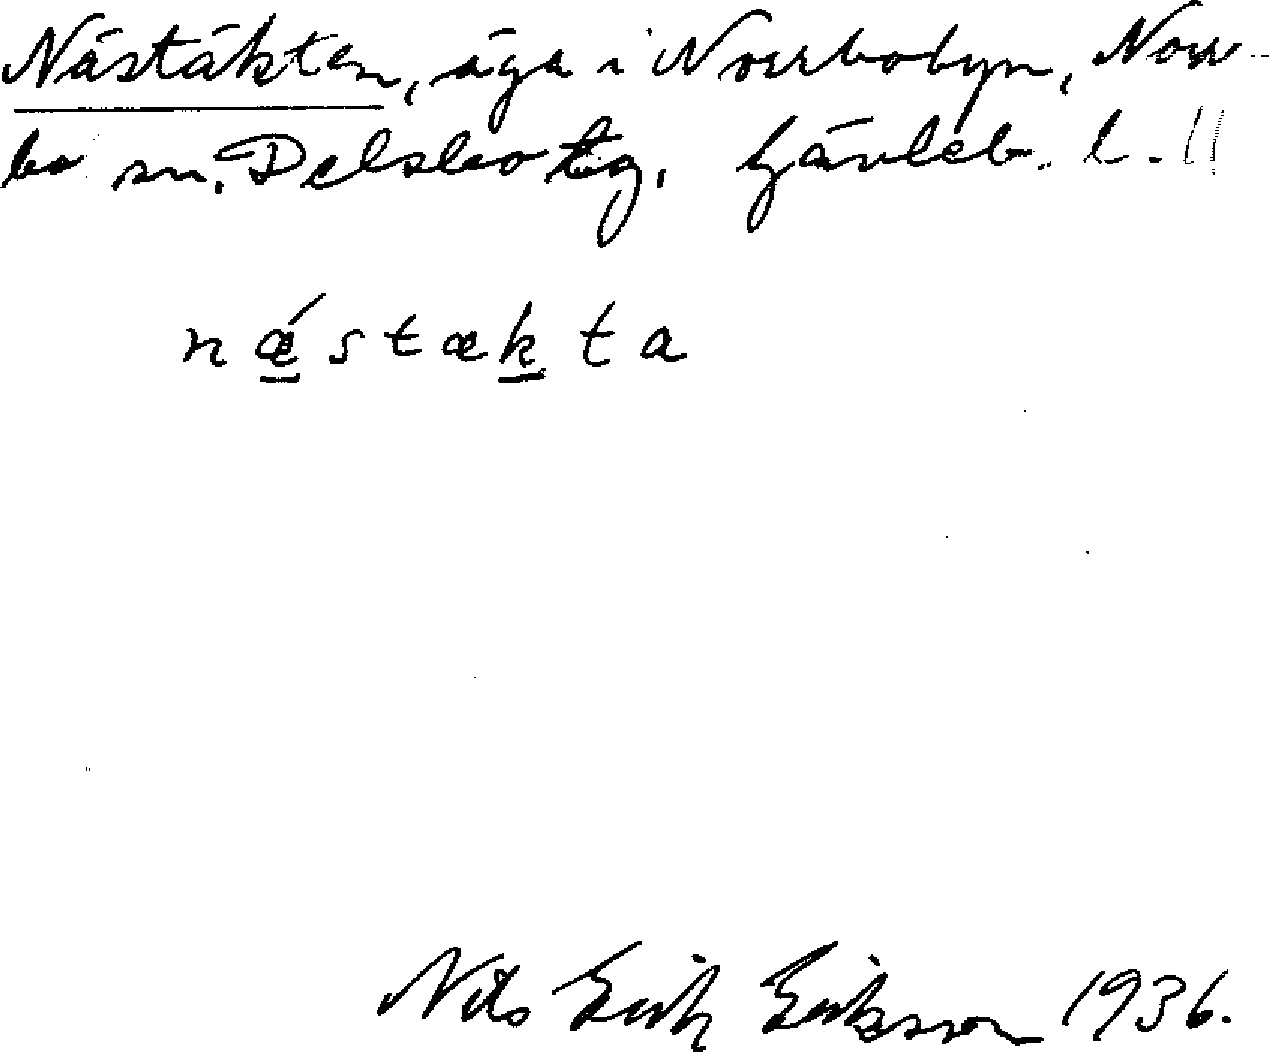 Nästäkten, äga i Norrbobyn, Norr-
bo sn. Delsbo tg. Gävleb. l.
nǽ̲stæk̲ta
Nils Erik Eriksson 1936.